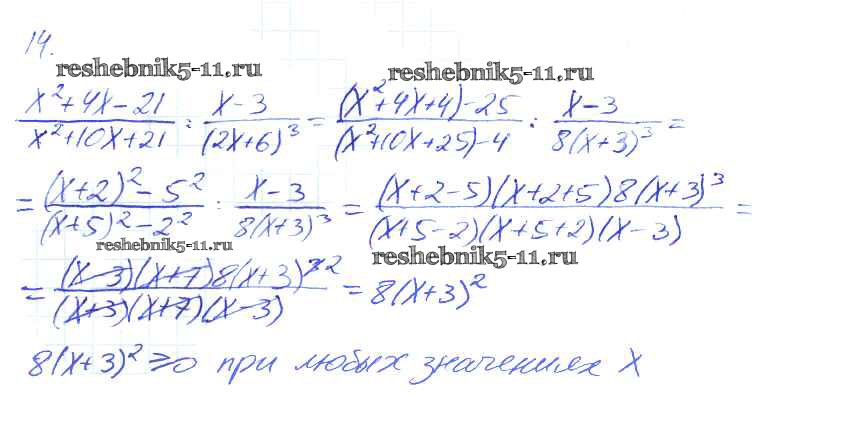 14.
reshebnik5-11.ru reshebnik5-11.ru
(x²+4x-21)/(x²+10x+21) : (x-3)/(2x+6)³ = ((x²+4x+4)-25)/((x²+10x+25)-4) : (x-3)/(8(x+3)³) =
= ((x+2)²-5²)/((x+5)²-2²) : (x-3)/(8(x+3)³) = ((x+2-5)(x+2+5)8(x+3)³)/((x+5-2)(x+5+2)(x-3)) =
reshebnik5-11.ru reshebnik5-11.ru
= ((x-3)(x+7)8(x+3)³ ²)/((x+3)(x+7)(x-3)) = 8(x+3)²
8(x+3)² ≥ 0 при любых значениях x